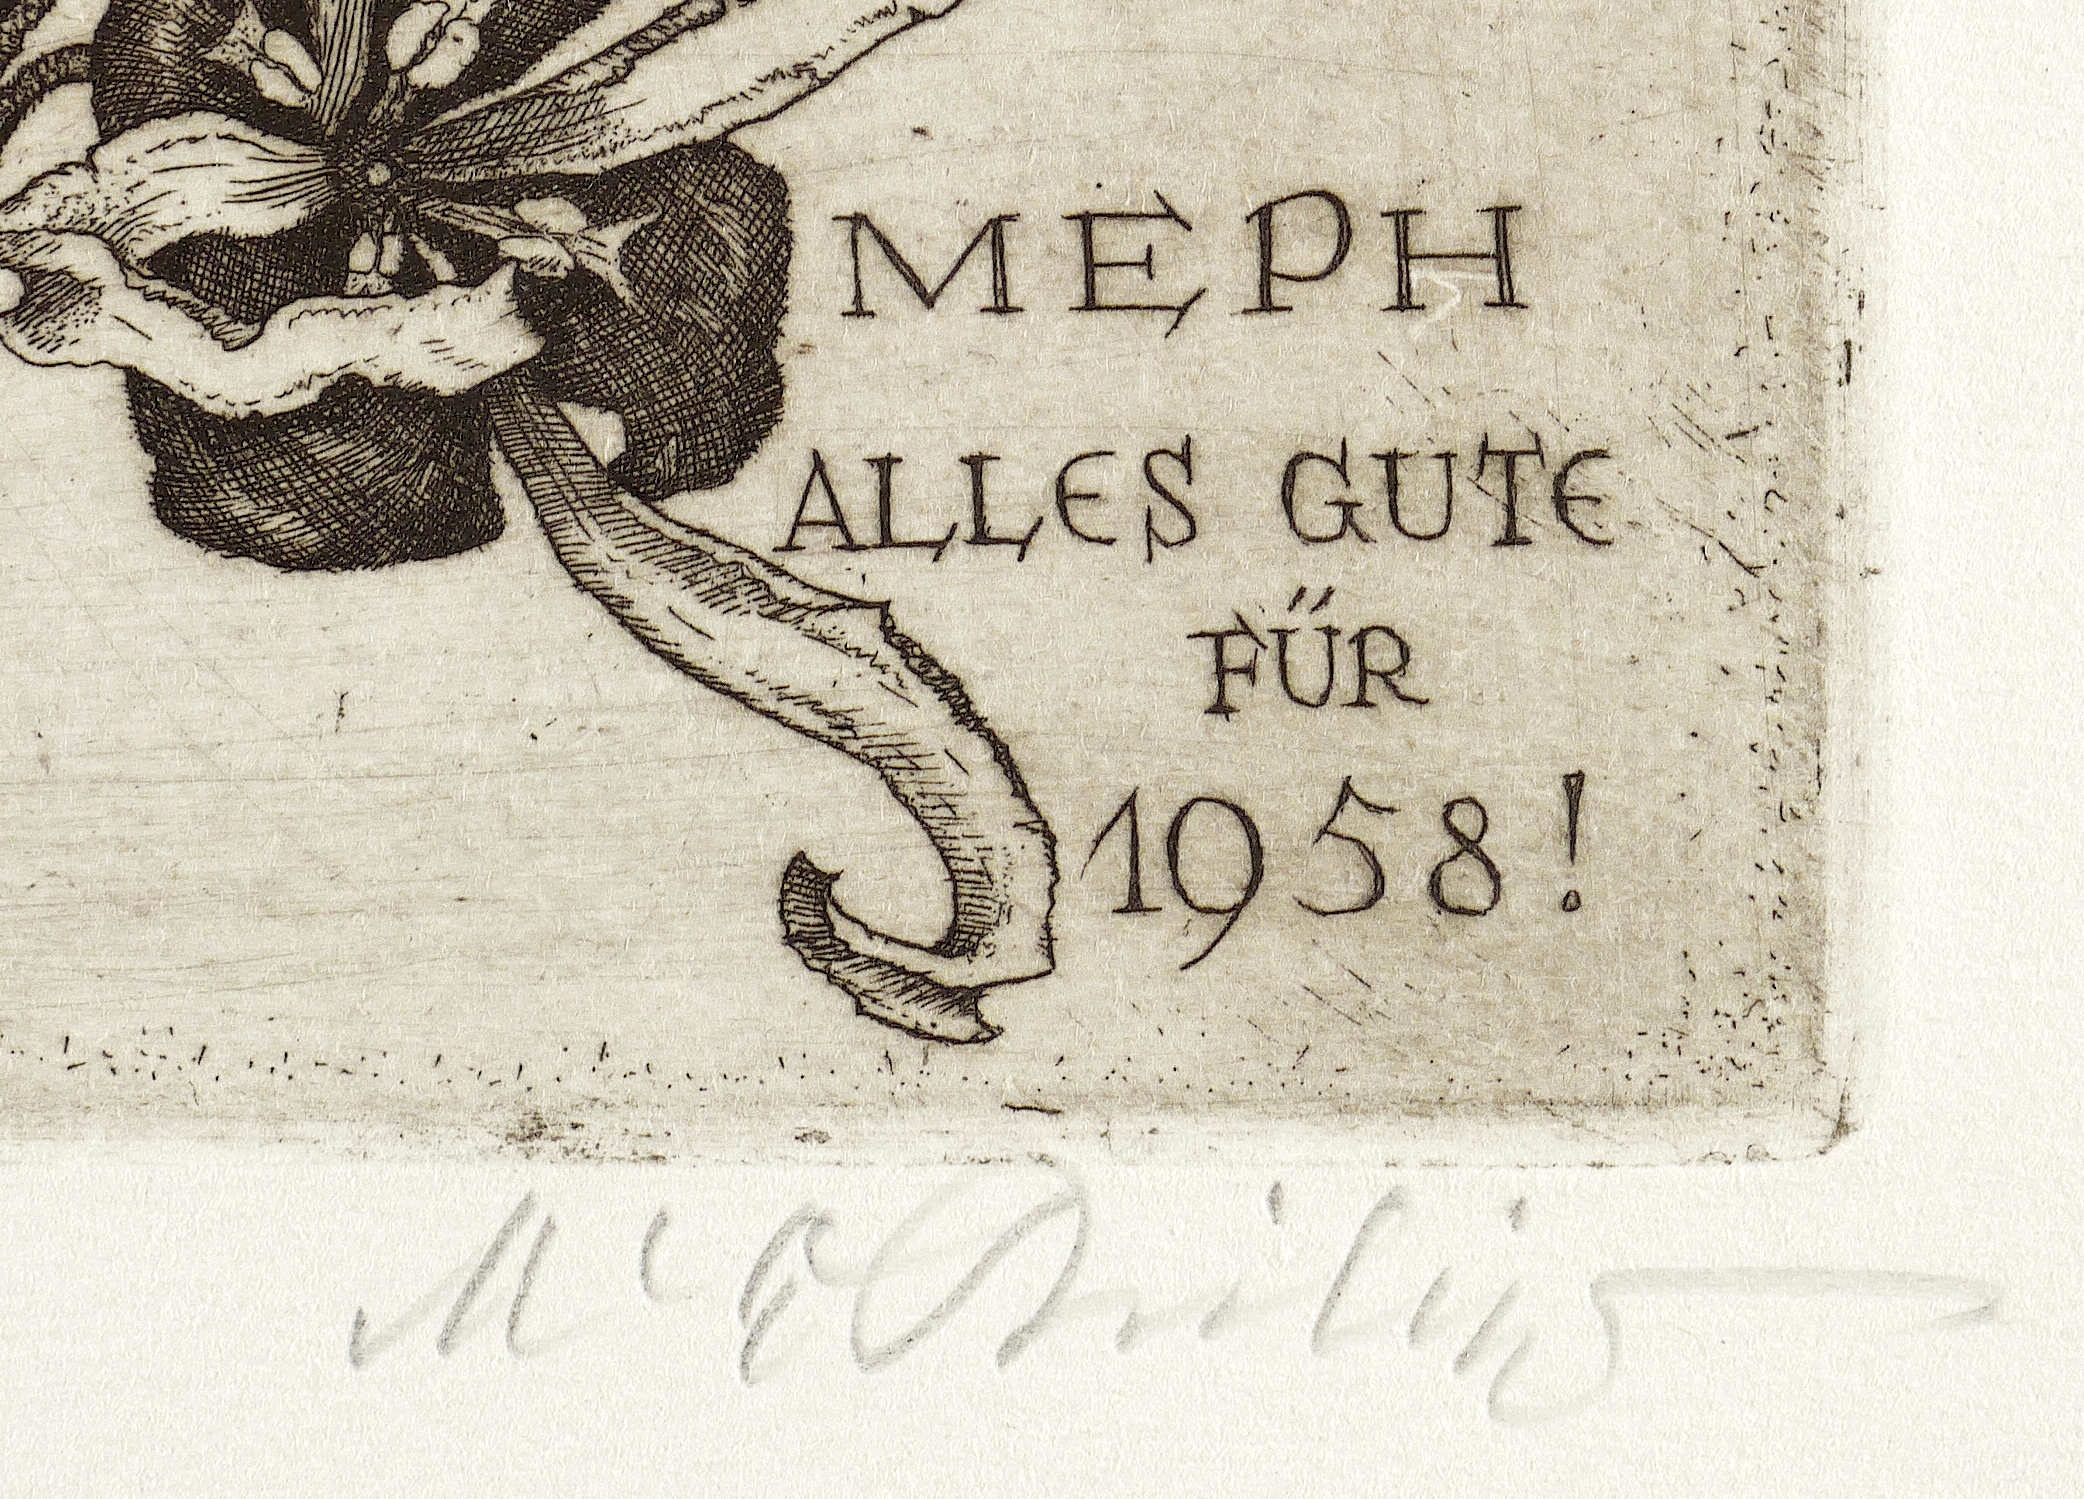 MEPH
ALLES GUTE
FÜR
1958!